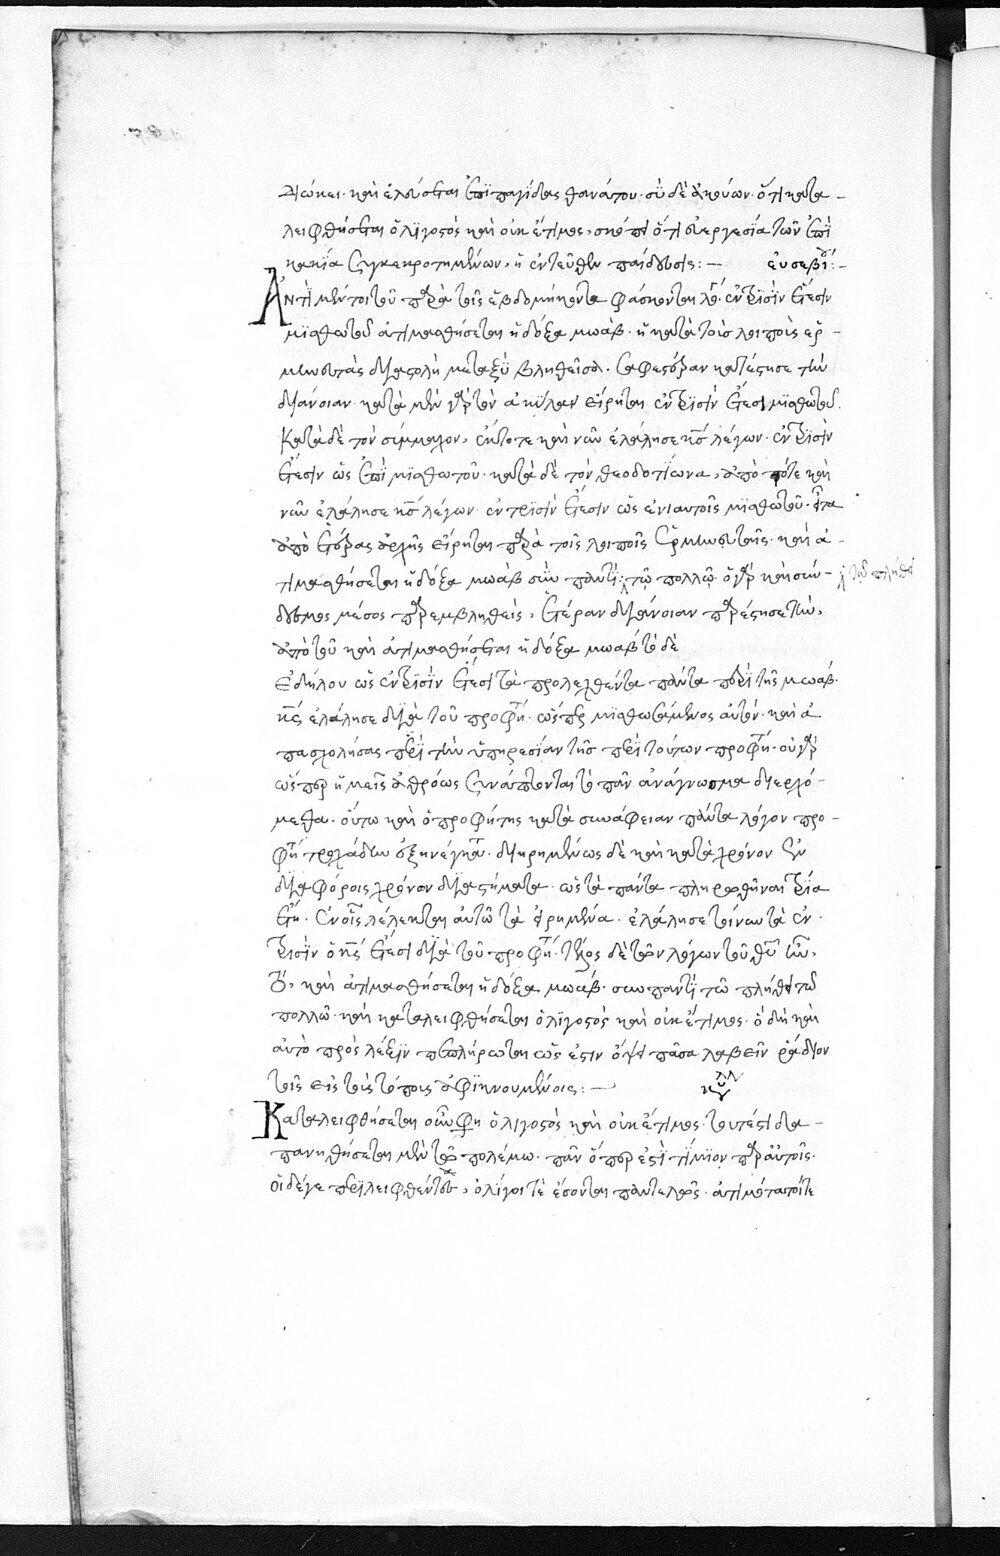 διώκει· καὶ ἐλεύσεται ἐπὶ παγίδας θανάτου· σὺ δὲ ἀκούων· ὅτι κατα-
λειφθήσεται ὀλιγοστὸς καὶ οὐκ ἔτιμος, ὅτι συνεργεσία τῶν ἐπὶ
κακία συγκεκροτημένων, ἡ ἐντεῦθεν παίδευσις:— εὐσεβίου:-
Ἀντὶ μέντοι τοῦ παρὰ τοῖς ἑβδομήκοντα φάσκοντος λόγου ἐν τρισὶν ἔτεσιν
μισθωτοῦ ἀτιμασθήσεται ἡ δόξα μωάβ· ἡ κατὰ τοὺς λοιποὺς ἑρ-
μηνευτὰς διαστολὴ μεταξὺ βληθεῖσα. σαφεστέραν κατέστησε τὴν
διάνοιαν· κατὰ μὲν γὰρ τὸν ἀκύλαν εἴρηται ἐν τρισὶν ἔτεσι μισθωτοῦ.
Κατὰ δὲ τὸν σύμμαχον, ἔκτοτε καὶ νῦν ἐλάλησε κς λέγων· ἐν τρισὶν
ἔτεσιν ὡς ἔτη μισθωτοῦ· κατὰ δὲ τὸν θεοδοτίωνα, ἀπὸ τότε καὶ
νῦν ἐλάλησε κς λέγων· ἐν τρισὶν ἔτεσιν ὡς ἐνιαυτοῖς μισθωτοῦ· εἶτα
ἀπὸ ἑτέρας ἀρχῆς εἴρηται παρὰ τοῖς λοιποῖς ἑρμηνευταῖς· καὶ ἀ-
τιμασθήσεται ἡ δόξα μωὰβ σὺν παντὶ τῷ πολλῷ· ὁ γὰρ καὶ σύν- τῷ πλήθει
δεσμος μέσος παρεμβληθείς, ἑτέραν διάνοιαν παρέστησε τὴν,
ἀπὸ τοῦ καὶ ἀτιμασθήσεται ἡ δόξα μωαβ τὸ δὲ
ἐδήλου ὡς ἐν τρισὶν ἔτεσι τὰ προλεχθέντα πάντα περὶ τῆς μωάβ.
κς ἐλάλησε διὰ τοῦ προφή· ὥσπερ μισθωσάμενος αὐτόν· καὶ ἀ
πασχολήσας περὶ τὴν ὑπηρεσίαν τῆς περὶ τούτων προφη· οὐ γὰρ
ὥσπερ ἡμεῖς ἀθρόως συνάπτοντες τὸ πᾶν ἀνάγνωσμα διερχό-
μεθα· οὕτω καὶ ὁ προφήτης κατὰ συνάφειαν πάντα λόγον προ-
φη τρυχάδην ἐξηνέγκα· διῃρημένως δὲ καὶ κατὰ χρόνον ἐν
διαφόροις χρόνον διαστήματα· ὡς τὰ πάντα πληρωθῆναι τρία
ἔτη· ἐν οἷς λέλεκται αὐτῷ τὰ εἰρημένα· ἐλάλησε τοίνυν τὰ ἐν
τρισὶν ὁ κς ἔτεσι διὰ τοῦ προφη· τέλος δὲ τῶν λόγων τοῦ θυ ἦν,
τὸ, καὶ ἀτιμασθήσεται ἡ δόξα μωάβ· συν παντὶ τῷ πλήθει τῷ
πολλῷ· καὶ καταλειφθήσεται ὀλιγοστὸς καὶ οὐκ ἔτιμος· ὁ δὴ καὶ
αὐτὸ πρὸς λέξιν πεπλήρωται ὡς ἔστιν ὄψει πᾶσα λαβεῖν ῥάδιον
τοῖς εἰς τοὺς τόπους ἀφικνουμένοις:— κυριλλ
Καταλειφθήσεται οὖν φη ὀλιγοστὸς καὶ οὐκ ἔτιμος· τουτέστι δα-
πανηθήσεται μὲν τῷ πολέμῳ· πᾶν ὅπερ ἐστὶ τίμιον παρ αὐτοῖς·
οἱ δέ γε περιλειφθέντες, ὀλίγοι τὲ ἔσονται παντελῶς· ἀτιμότατοί τε